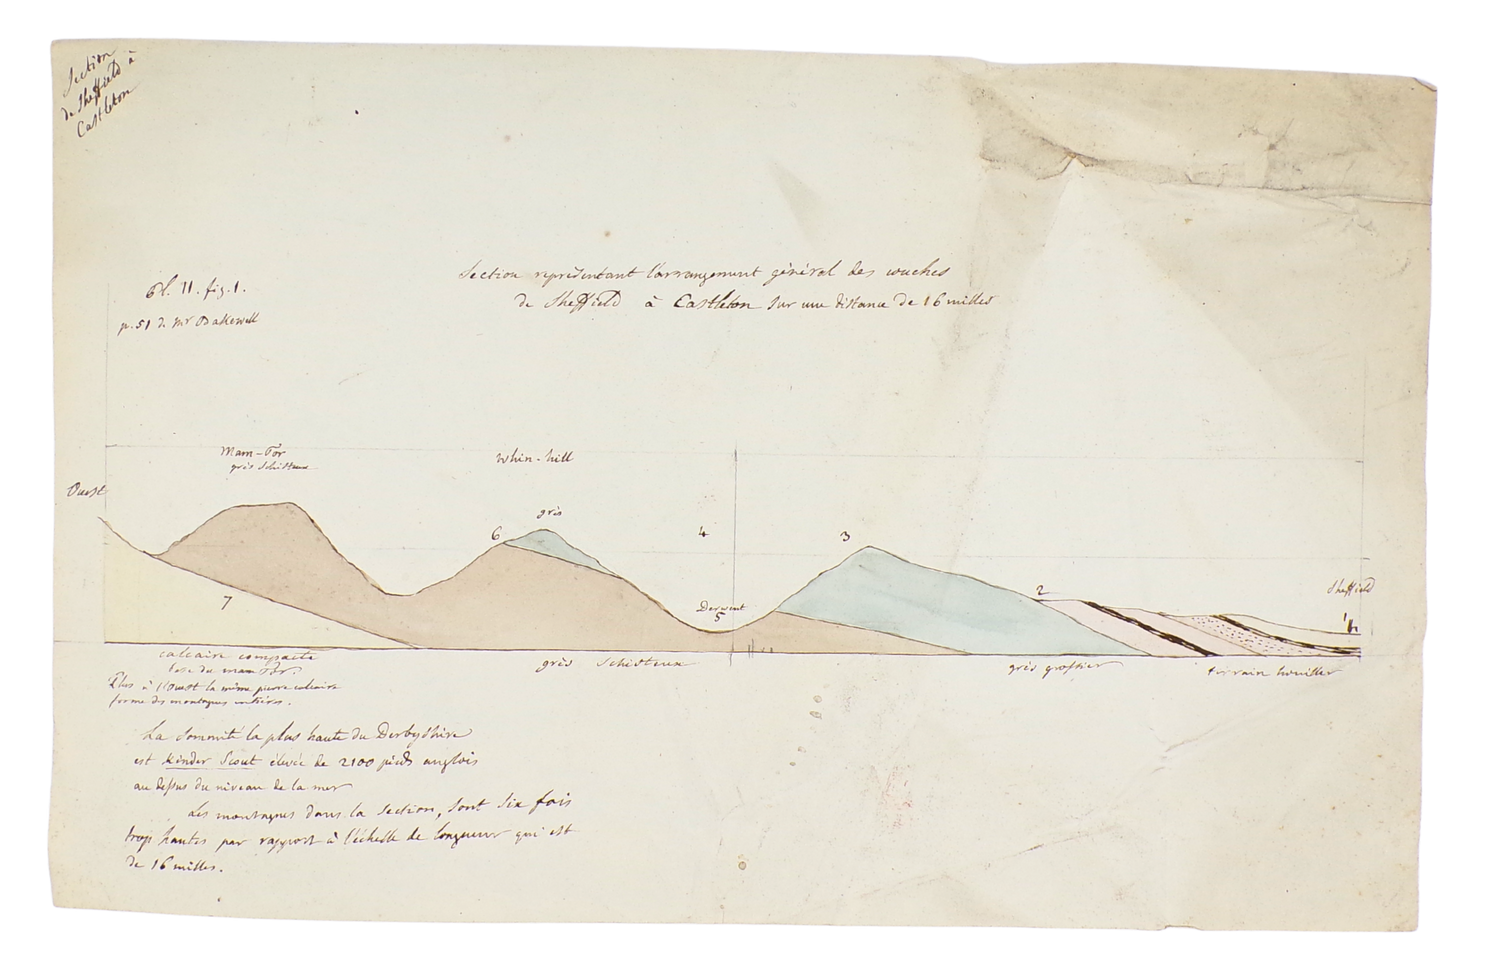 Section
de Sheffield à
Castleton
Pl. II. fig. 1.
p. 51 de Mr Bakewell
Section représentant l'arrangement général des couches
de Sheffield à Castleton sur une distance de 16 milles
Mam-Tor
grès Schisteux
Whin-hill
Ouest
grès
6
4
3
2
Sheffield
1
Derwent
5
7
calcaire compacte
base du mam Tor.
Plus à l'Ouest la même pierre calcaire
forme des montagnes entières.
grès Schisteux
grès grossier
terrain houiller
La Sommité la plus haute du Derbyshire
est Kinder Scout élevée de 2100 pieds anglois
au dessus du niveau de la mer
Les montagnes dans la Section, sont Six fois
trop hautes par rapport à l'échelle de longueur qui est
de 16 milles.